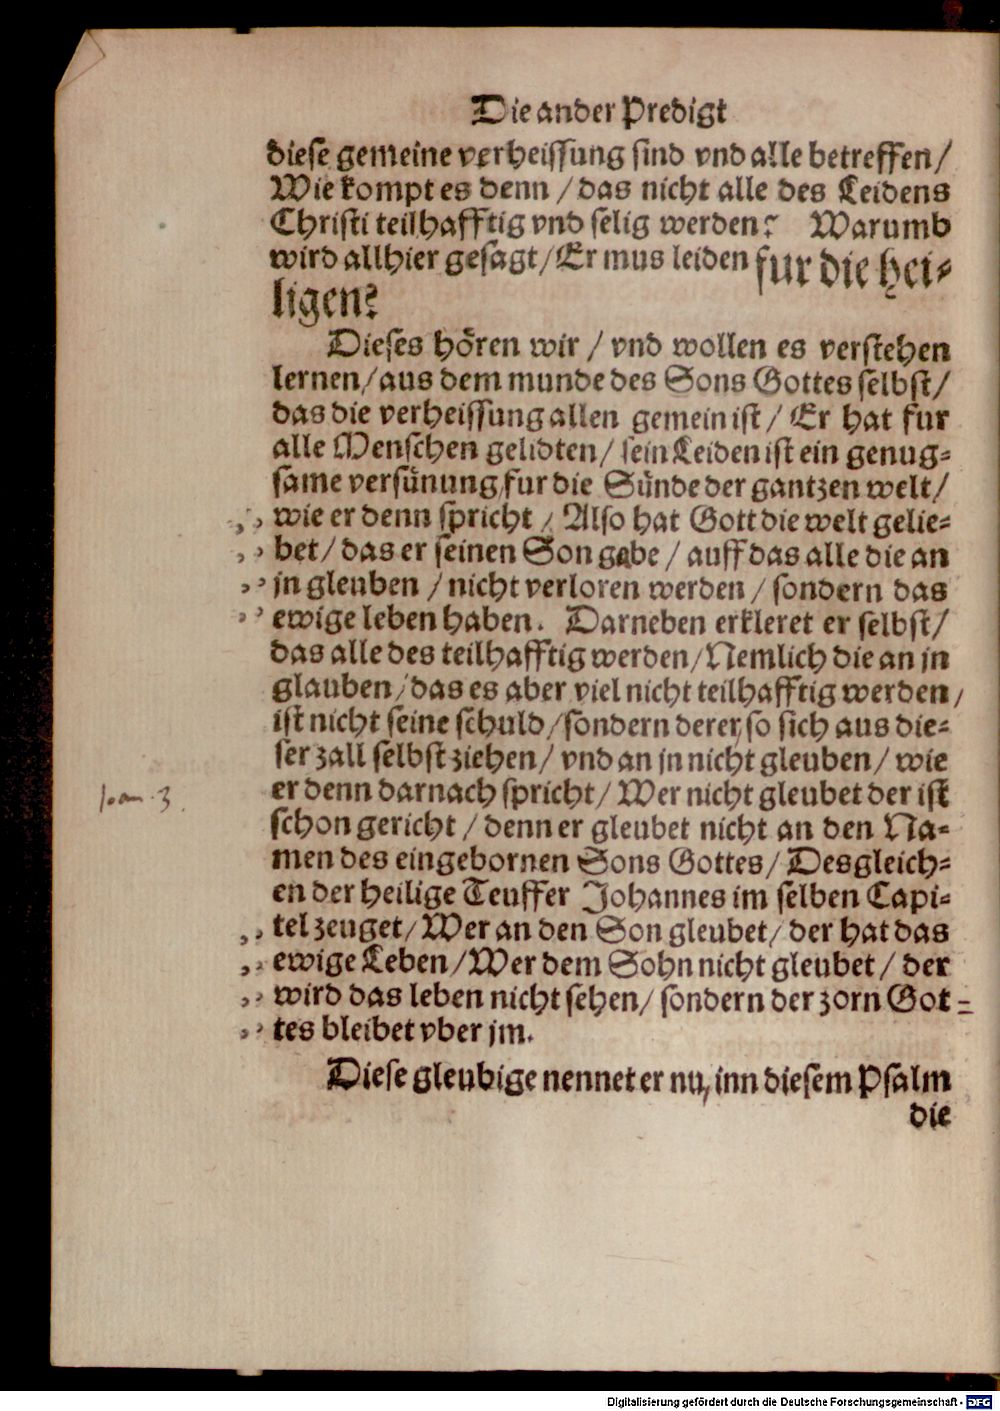 Die ander Predigt
diese gemeine verheissung sind vnd alle betreffen/
Wie kompt es denn / das nicht alle des Leidens
Christi teilhafftig vnd selig werden? Warumb
wird allhier gesagt/ Er mus leiden fur die hei⸗
ligen?
Dieses hören wir / vnd wollen es verstehen
lernen/ aus dem munde des Sons Gottes selbst/
das die verheissung allen gemein ist/ Er hat fur
alle Menschen gelidten/ sein Leiden ist ein genug⸗
same versünung/ fur die Sünde der gantzen welt/
,, wie er denn spricht / Also hat Gott die welt gelie⸗
,, bet/ das er seinen Son gabe / auff das alle die an
,, jn gleuben / nicht verloren werden / sondern das
,, ewige leben haben. Darneben erkleret er selbst/
das alle des teilhafftig werden/ Nemlich die an jn
glauben/ das es aber viel nicht teilhafftig werden/
ist nicht seine schuld/ sondern derer/ so sich aus die⸗
ser zall selbst ziehen/ vnd an jn nicht gleuben/ wie
Joan. 3.
er denn darnach spricht/ Wer nicht gleubet der ist
schon gericht / denn er gleubet nicht an den Na⸗
men des eingebornen Sons Gottes/ Desgleich⸗
en der heilige Teuffer Johannes im selben Capi⸗
,, tel zeuget/ Wer an den Son gleubet/ der hat das
,, ewige Leben/ Wer dem Sohn nicht gleubet/ der
,, wird das leben nicht sehen/ sondern der zorn Got⸗
,, tes bleibet vber jm.
Diese gleubige nennet er nu/ inn diesem Psalm
die
Digitalisierung gefördert durch die Deutsche Forschungsgemeinschaft - DFG